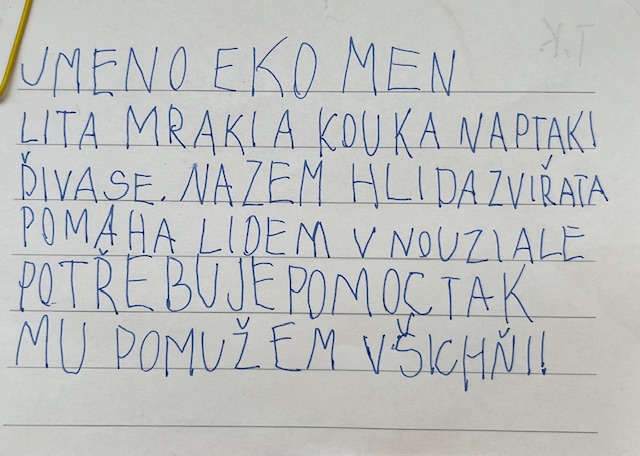 JMENO EKO MEN
LITA MRAKI A KOUKA NAPTAKI
ĎIVASE. NAZEM HLIDAZVIŘATA
POMÁHA LIDEM V NOUZIALE
POTŘEBUJEPOMOC TAK
MU POMUŽEM VŠICHŇI!